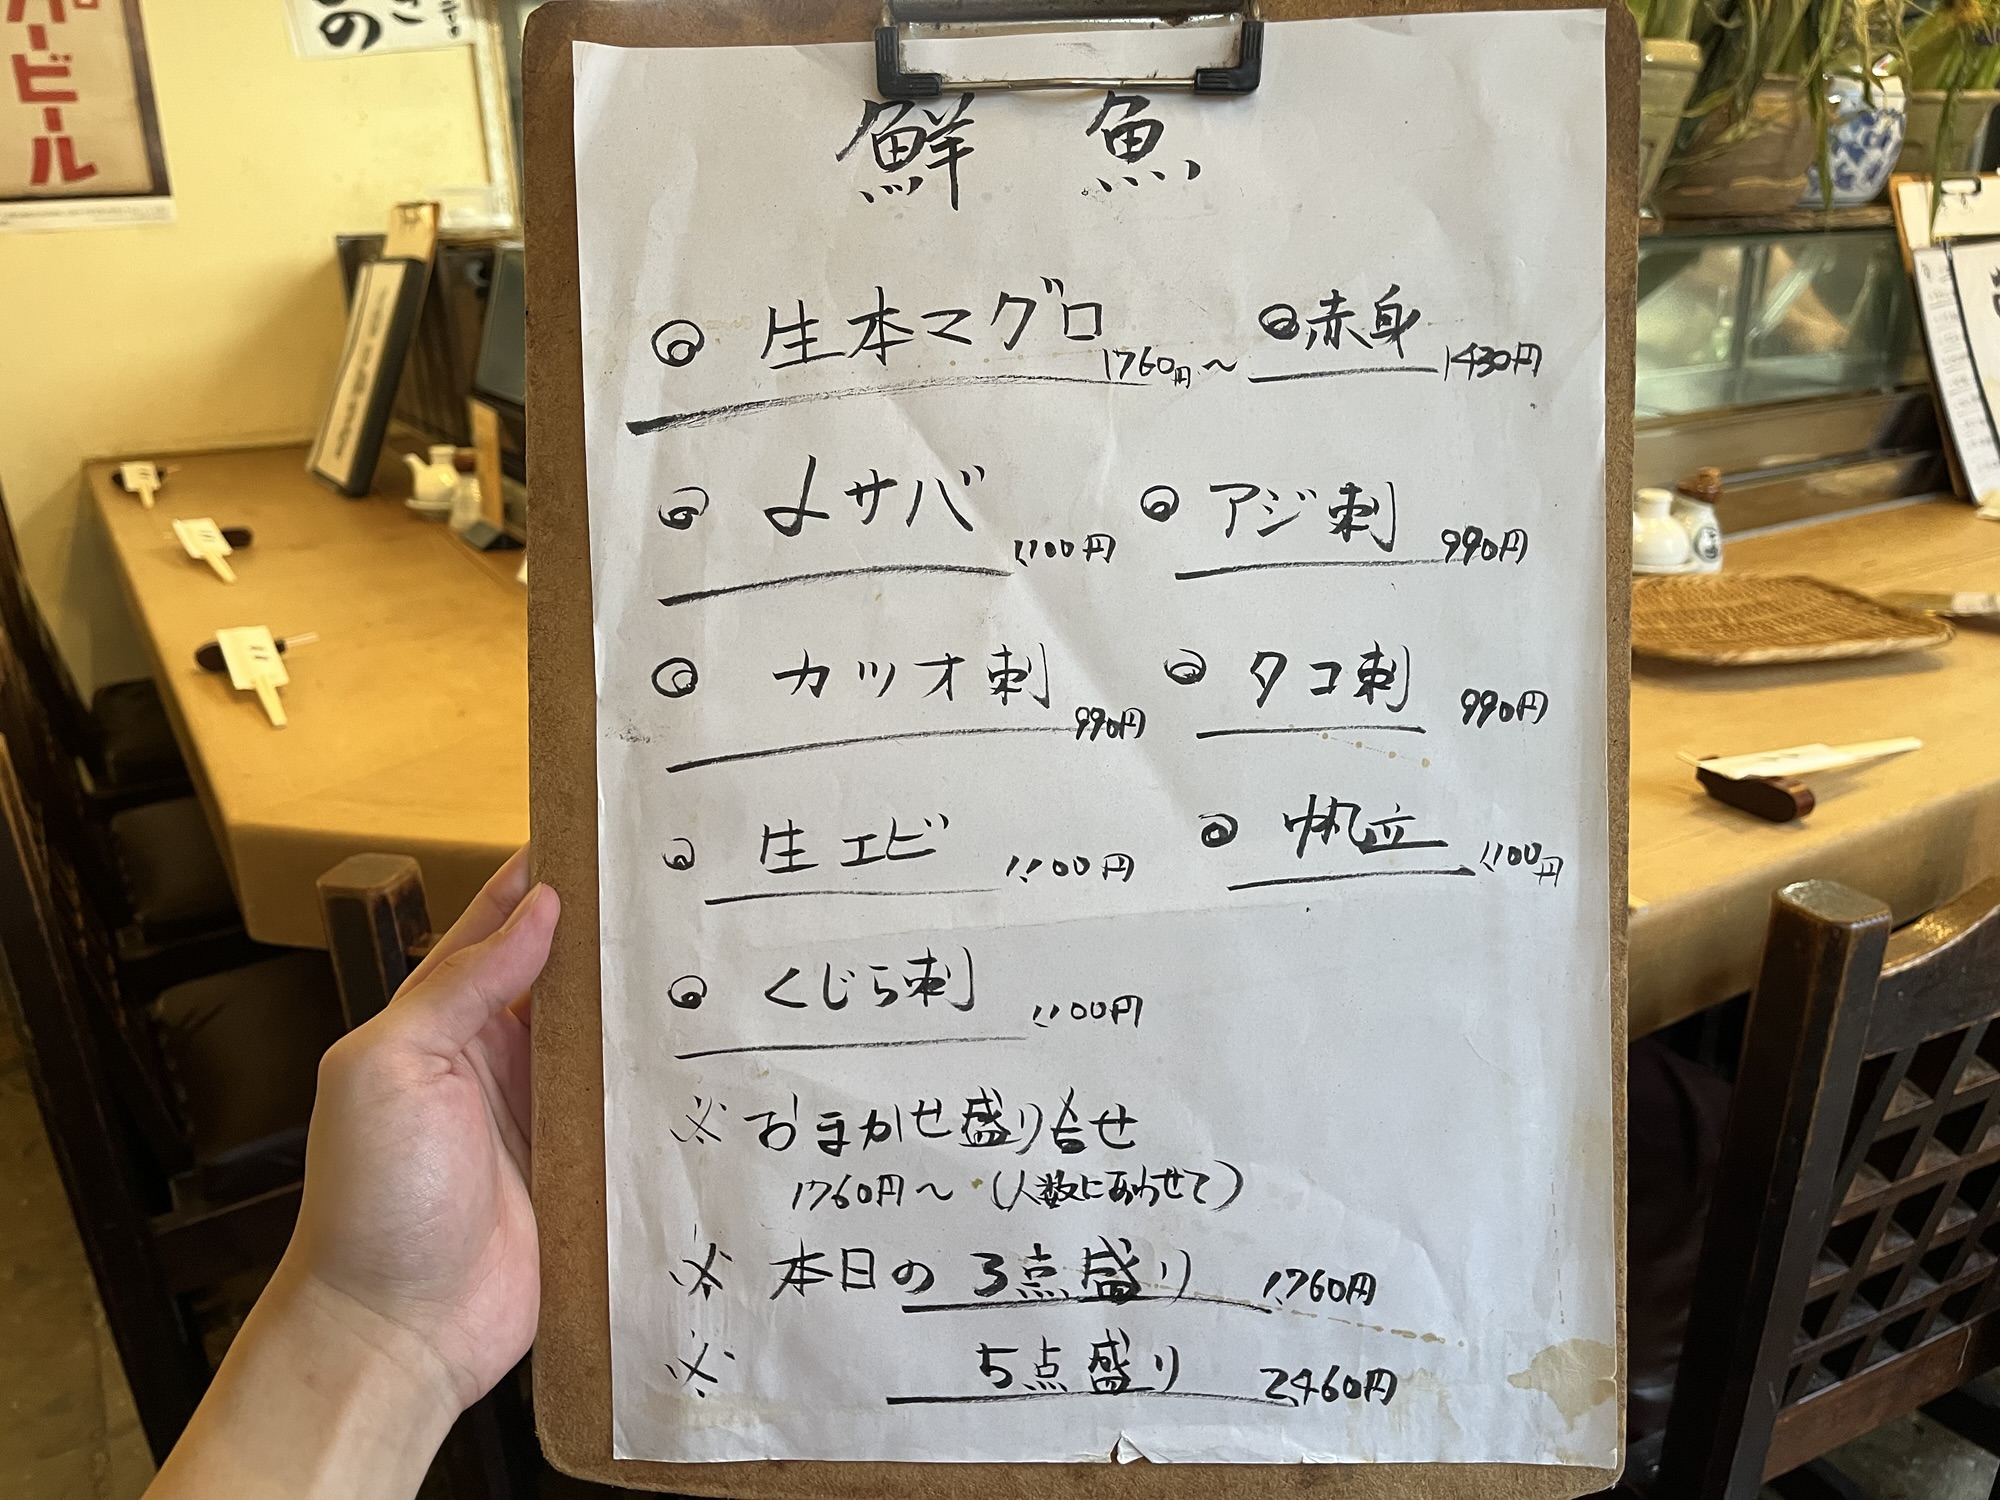 ビール
の
鮮魚
◎ 生本マグロ 1760円〜 ◎赤身 1430円
◎ 〆サバ 1,100円 ◎ アジ刺 990円
◎ カツオ刺 990円 ◎ タコ刺 990円
◎ 生エビ 1,100円 ◎ 帆立 1,100円
◎ くじら刺 1,100円
※ おまかせ盛り合せ
1760円〜 (人数にあわせて)
※ 本日の 3点盛り 1,760円
※ 5点盛り 2,460円